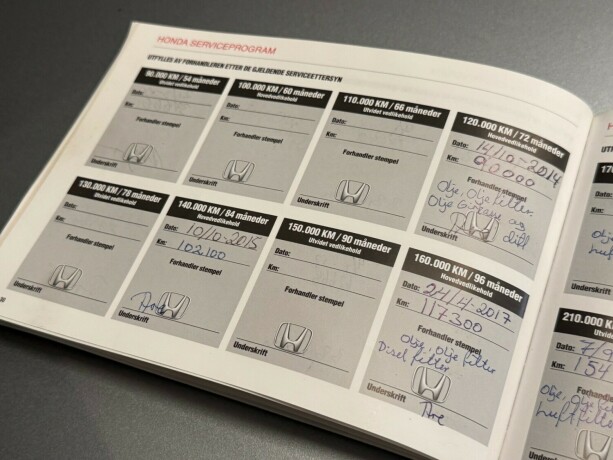 HONDA SERVICEPROGRAM
UTFYLLES AV FORHANDLEREN ETTER DE GJELDENDE SERVICEETTERSYN
90.000 KM / 54 måneder
Utvidet vedlikehold
Dato:
Km:
Forhandler stempel
Underskrift
100.000 KM / 60 måneder
Hovedvedlikehold
Dato:
Km:
Forhandler stempel
Underskrift
110.000 KM / 66 måneder
Utvidet vedlikehold
Dato:
Km:
Forhandler stempel
Underskrift
120.000 KM / 72 måneder
Hovedvedlikehold
Dato: 14/10-2014
Km: 90000
Forhandler stempel
Olje, Olje filter
Olje Girkasse og
diff
Underskrift
130.000 KM / 78 måneder
Utvidet vedlikehold
Dato:
Km:
Forhandler stempel
Underskrift
140.000 KM / 84 måneder
Hovedvedlikehold
Dato: 10/10-2015
Km: 102100
Forhandler stempel
Underskrift
150.000 KM / 90 måneder
Utvidet vedlikehold
Dato:
Km:
Forhandler stempel
Underskrift
160.000 KM / 96 måneder
Hovedvedlikehold
Dato: 24/4-2017
Km: 117300
Forhandler stempel
Olje, olje filter
Disel filter
Underskrift
210.000
Dato: 7/
Km: 154
Olje,
Luftfilter
Underskrift